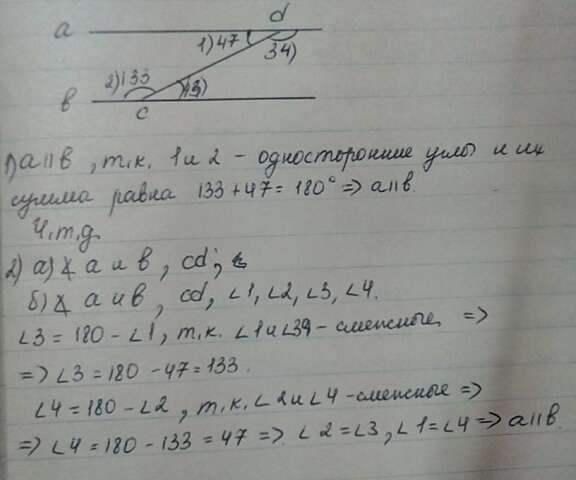 d
a
1) 47
34)
2) 133
b
c
1) a || b, т.к. 1 и 2 - односторонние углы и их
сумма равна 133 + 47 = 180° => a || b.
Ч.т.д.
2) а) ∠ a и b, cd;
б) ∠ a и b, cd, ∠1, ∠2, ∠3, ∠4.
∠3 = 180 - ∠1, т.к. ∠1 и ∠39 - смежные, =>
=> ∠3 = 180 - 47 = 133.
∠4 = 180 - ∠2, т.к. ∠2 и ∠4 - смежные =>
=> ∠4 = 180 - 133 = 47 => ∠2 = ∠3, ∠1 = ∠4 => a || b.